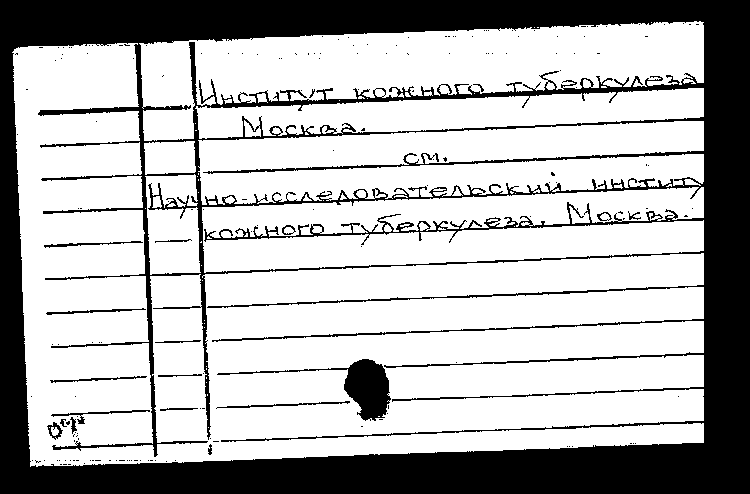 Институт кожного туберкулеза
Москва.
см.
Научно-исследовательский институ
кожного туберкулеза. Москва.